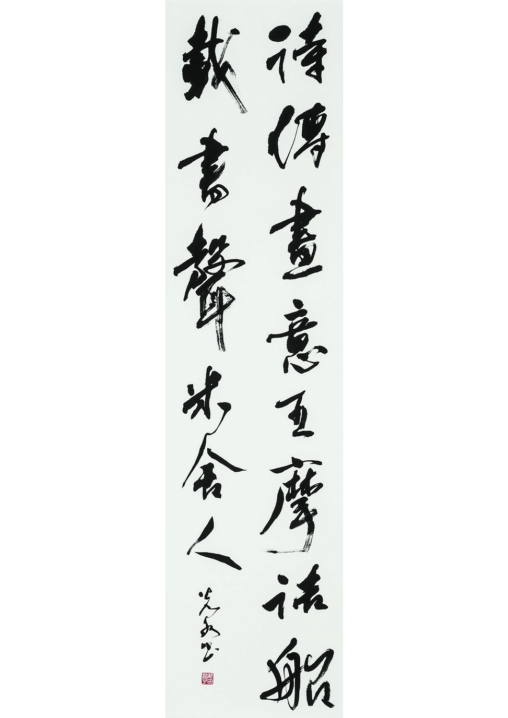 詩傳畫意王摩詰船
載書聲米舍人
光書